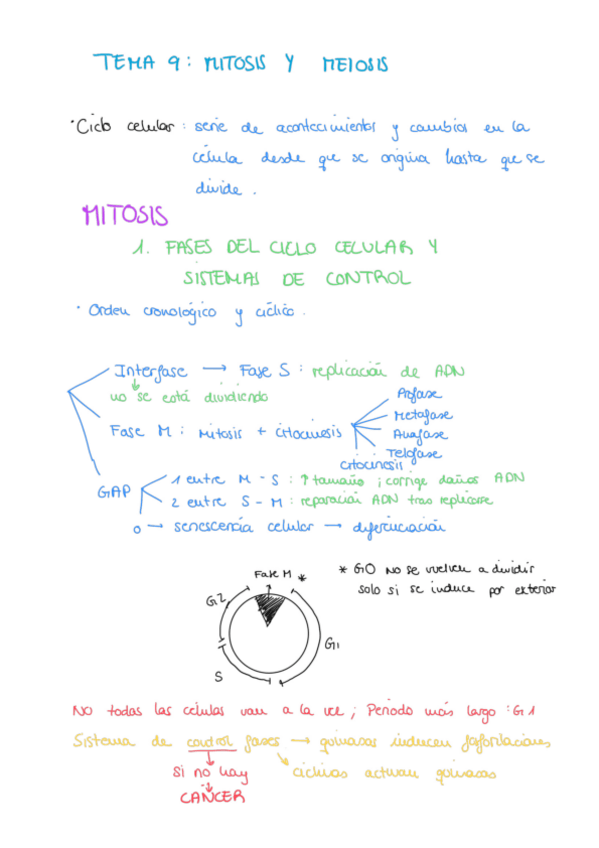 TEMA 9: MITOSIS Y MEIOSIS
· Ciclo celular: serie de acontecimientos y cambios en la
célula desde que se origina hasta que se
divide.
MITOSIS
1. FASES DEL CICLO CELULAR Y
SISTEMAS DE CONTROL
· Orden cronológico y cíclico.
Interfase → Fase S: replicación de ADN
no se está dividiendo
Profase
Metafase
Fase M: Mitosis + citocinesis
Anafase
Telofase
citocinesis
GAP
1 entre M - S: ↑ tamaño; corrige daños ADN
2 entre S - M: reparación ADN tras replicarse
0 → senescencia celular → diferenciación
Fase M *
* G0 no se vuelven a dividir
solo si se induce por exterior
G2
G1
S
NO todas las células van a la vez; Periodo más largo: G1
Sistema de control fases → quinasas inducen fosforilaciones
Si no hay
ciclinas activan quinasas
CANCER